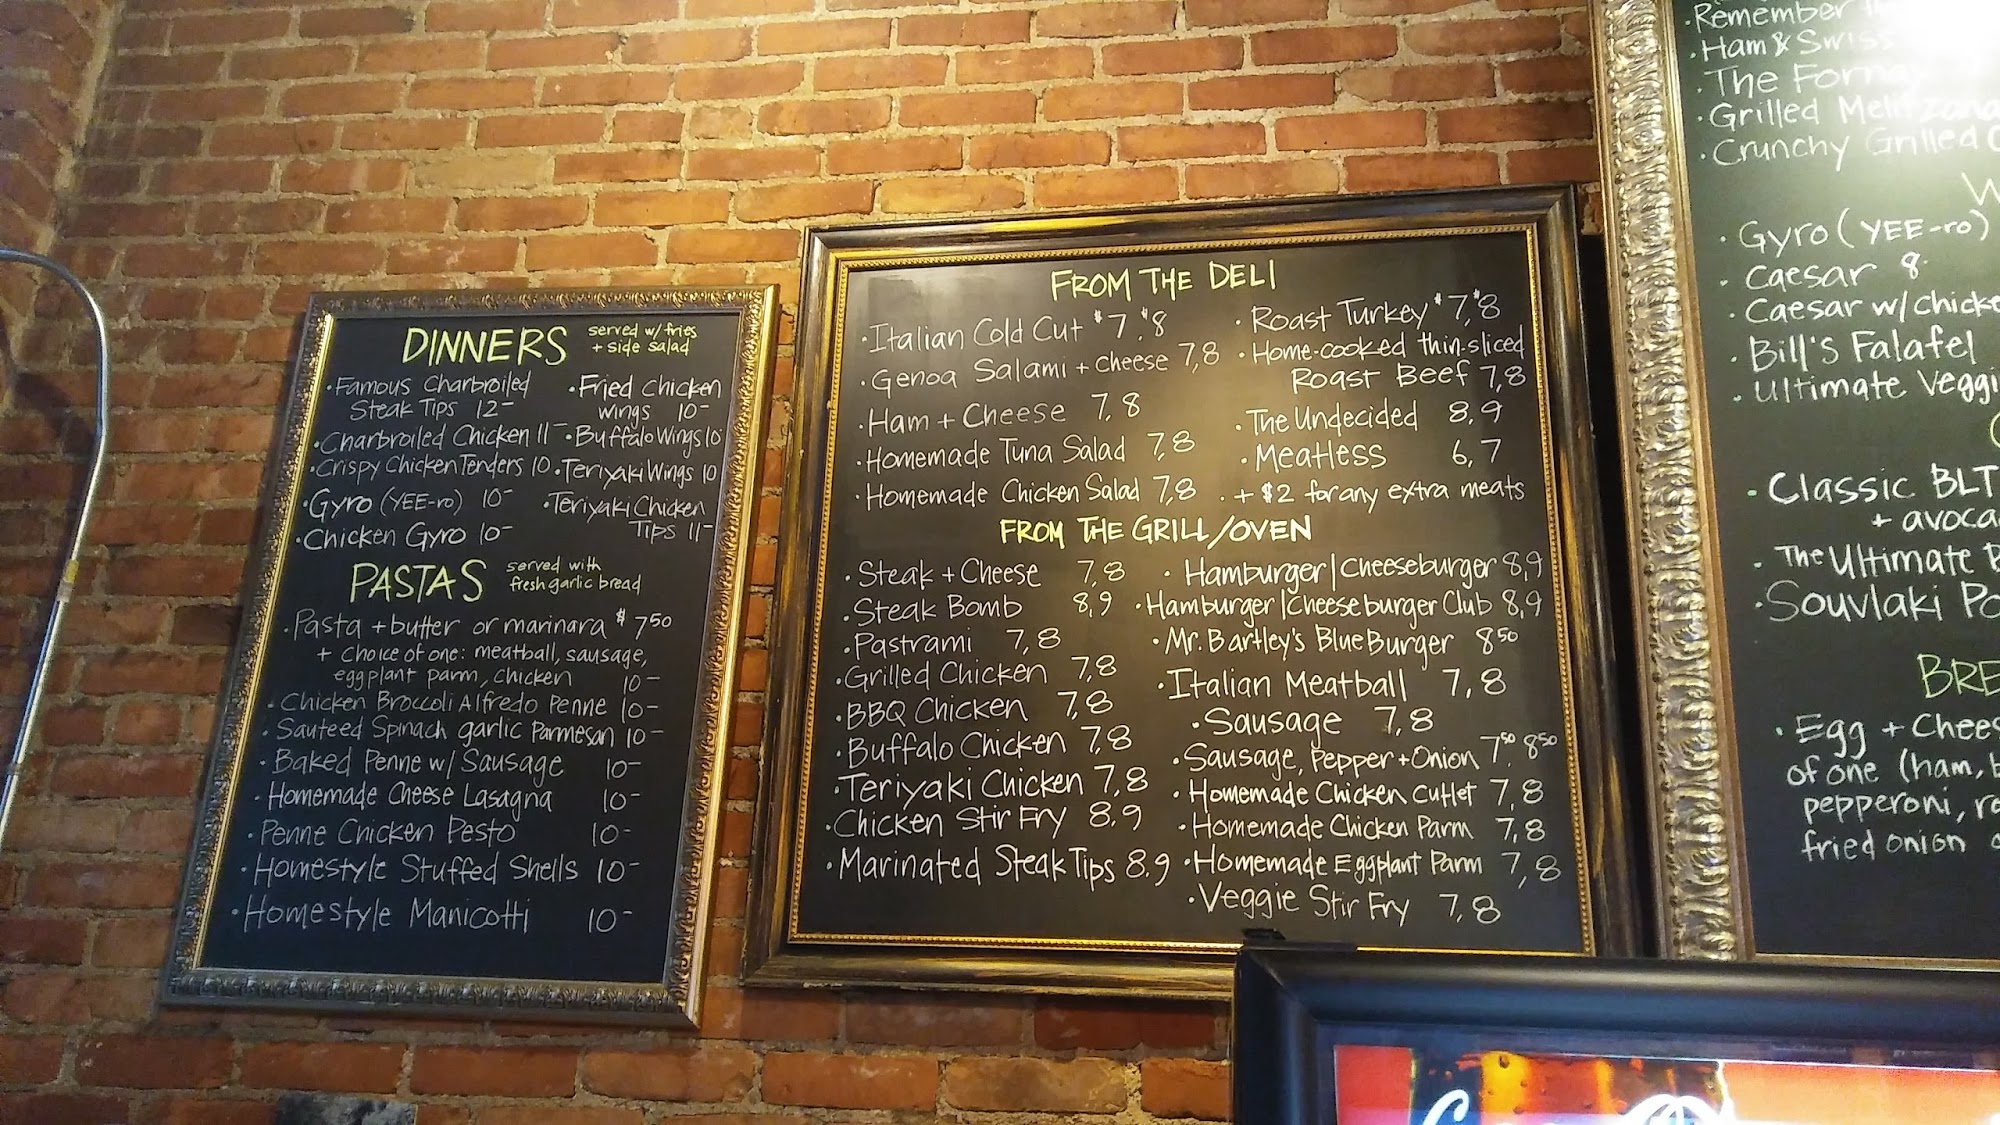 DINNERS served w/ fries
+ side salad
• Famous Charbroiled
Steak Tips 12-
• Charbroiled Chicken 11-
• Crispy Chicken Tenders 10
• Gyro (YEE-ro) 10-
• Chicken Gyro 10-
• Fried Chicken
wings 10-
• Buffalo Wings 10
• Teriyaki Wings 10
• Teriyaki Chicken
Tips 11-
PASTAS served with
fresh garlic bread
• Pasta + butter or marinara $7.50
+ choice of one: meatball, sausage,
eggplant parm, chicken 10-
• Chicken Broccoli Alfredo Penne 10-
• Sauteed Spinach garlic Parmesan 10-
• Baked Penne w/ Sausage 10-
• Homemade Cheese Lasagna 10-
• Penne Chicken Pesto 10-
• Homestyle Stuffed Shells 10-
• Homestyle Manicotti 10-
FROM THE DELI
• Italian Cold Cut $7, $8
• Genoa Salami + Cheese 7,8
• Ham + Cheese 7,8
• Homemade Tuna Salad 7,8
• Homemade Chicken Salad 7,8
• Roast Turkey $7, $8
• Home-cooked thin-sliced
Roast Beef 7,8
• The Undecided 8,9
• Meatless 6,7
• + $2 for any extra meats
FROM THE GRILL/OVEN
• Steak + Cheese 7,8
• Steak Bomb 8,9
• Pastrami 7,8
• Grilled Chicken 7,8
• BBQ Chicken 7,8
• Buffalo Chicken 7,8
• Teriyaki Chicken 7,8
• Chicken Stir Fry 8,9
• Marinated Steak Tips 8,9
• Hamburger/Cheeseburger 8,9
• Hamburger/Cheeseburger Club 8,9
• Mr. Bartley's Blue Burger 8.50
• Italian Meatball 7,8
• Sausage 7,8
• Sausage, Pepper + Onion 7.50, 8.50
• Homemade Chicken Cutlet 7,8
• Homemade Chicken Parm 7,8
• Homemade Eggplant Parm 7,8
• Veggie Stir Fry 7,8
• Remember
• Ham & Swiss
• The Fornay
• Grilled Melitzana
• Crunchy Grilled
• Gyro (YEE-ro)
• Caesar 8
• Caesar w/
• Bill's Falafel
• Ultimate
• Classic BLT
+
• The Ultimate
• Souvlaki
• Egg +
of one (ham,
pepperoni,
fried onion